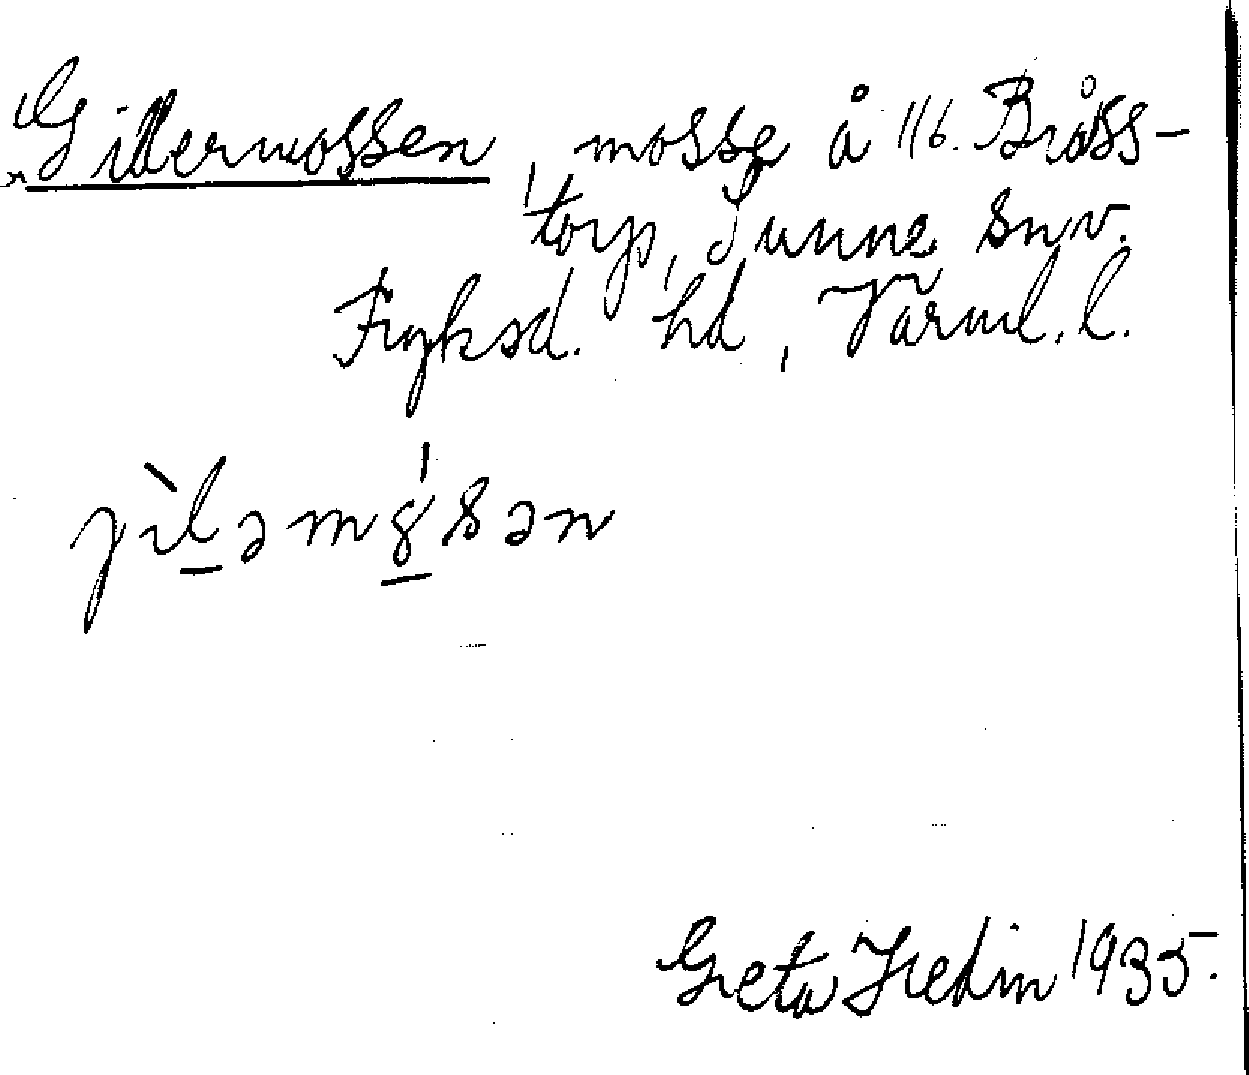 Gillermossen, mosse å 1/16. Bråss-
torp, Sunne snv.
Fryksd. hd, Värml. l.
jìləmɣ́sən
Greta Hedin 1935.